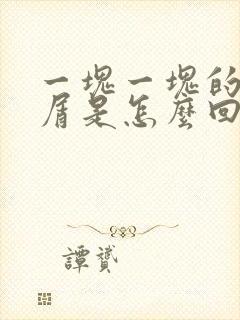 一塊一塊的
屑是怎麼回
譚贇